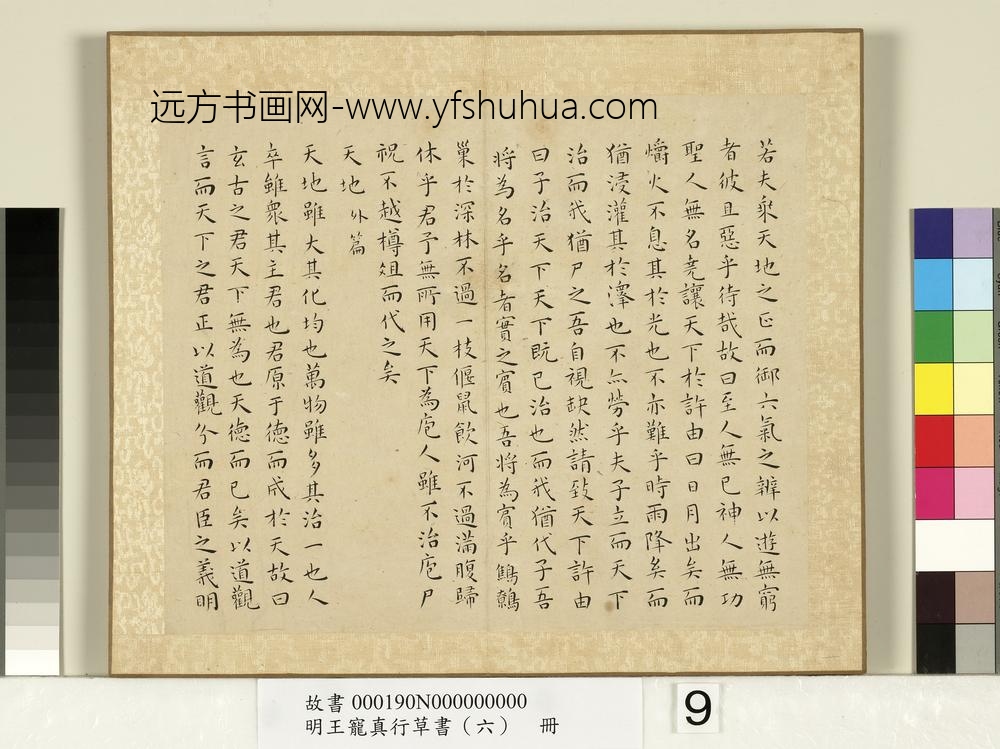 远方书画网-www.yfshuhua.com
若夫乘天地之正而御六氣之辨以遊無窮
者彼且惡乎待哉故曰至人無己神人無功
聖人無名堯讓天下於許由曰日月出矣而
爝火不息其於光也不亦難乎時雨降矣而
猶浸灌其於澤也不亦勞乎夫子立而天下
治而我猶尸之吾自視缺然請致天下許由
曰子治天下天下既已治也而我猶代子吾
將為名乎名者實之賓也吾將為賓乎鷦鷯
巢於深林不過一枝偃鼠飲河不過滿腹歸
休乎君予無所用天下為庖人雖不治庖尸
祝不越樽俎而代之矣
天地 外篇
天地雖大其化均也萬物雖多其治一也人
卒雖衆其主君也君原于德而成於天故曰
玄古之君天下無為也天德而已矣以道觀
言而天下之君正以道觀分而君臣之義明
故書 000190N000000000
明王寵真行草書（六） 冊
9